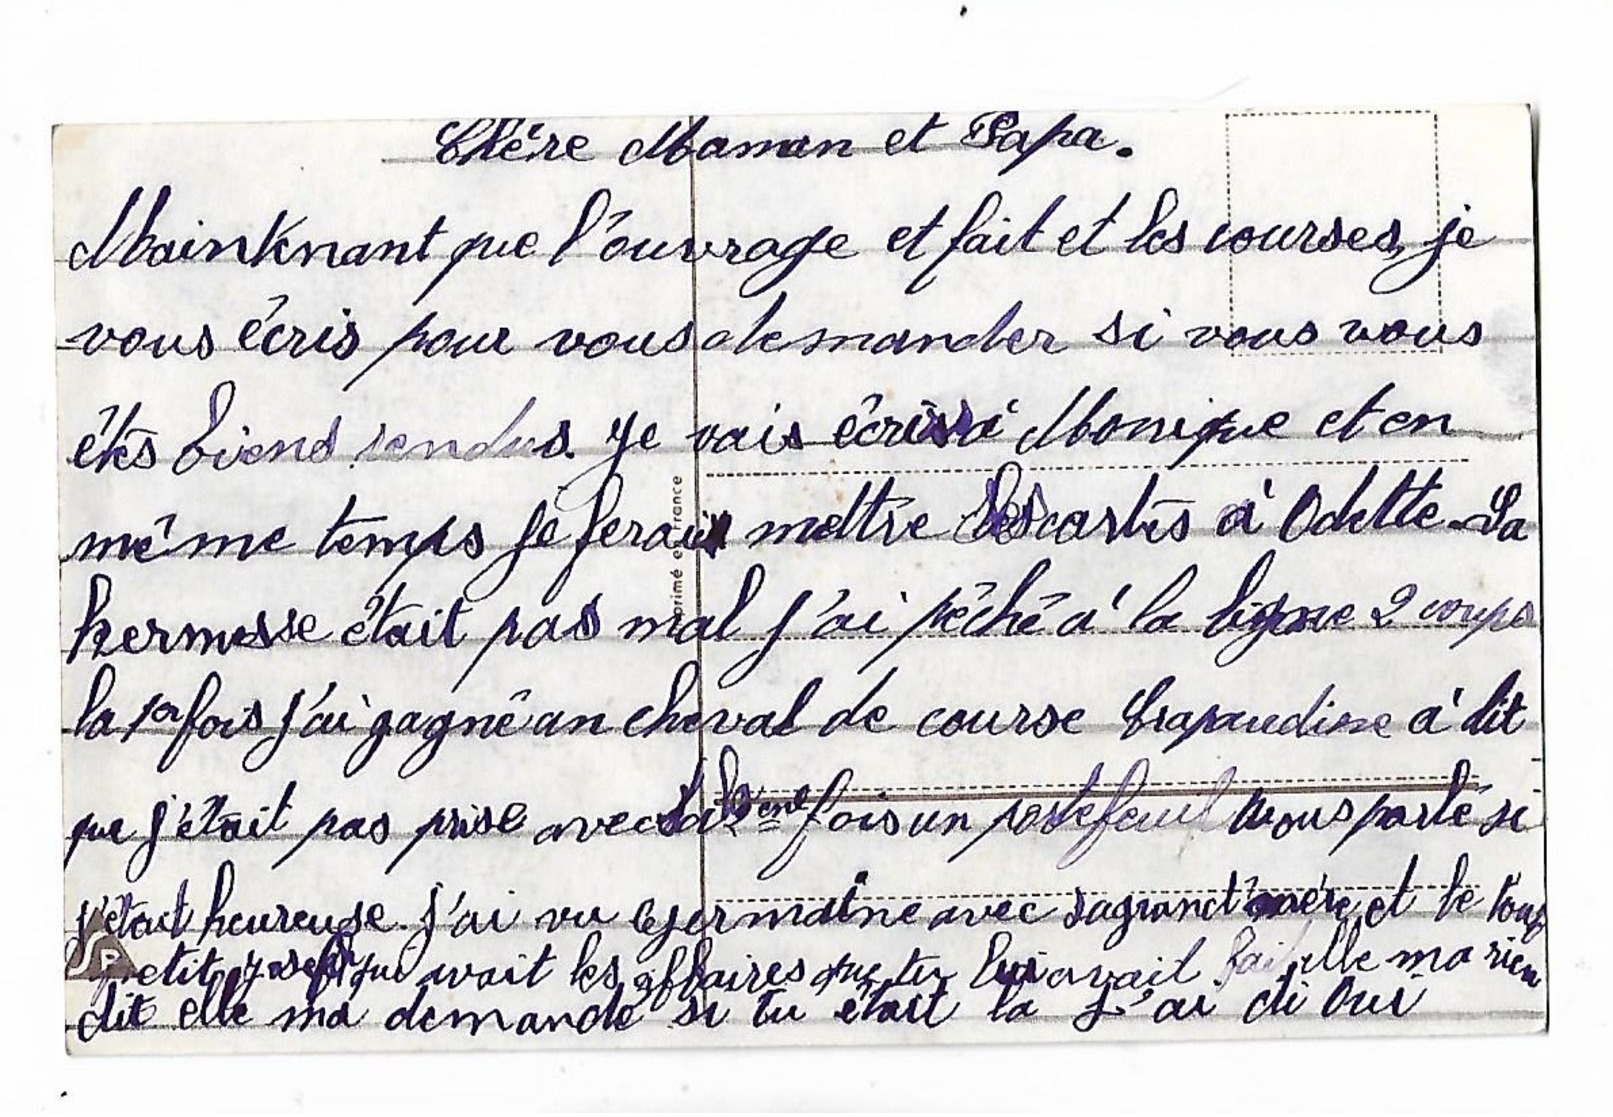 Chère Maman et Papa.
Maintenant que l'ouvrage et fait et les courses, je
vous écris pour vous demander si vous vous
êtes biend rendus. Je vais écris à Monique et en
même temps je ferai mettre les cartes à Odette. La
kermesse était pas mal j'ai pêché à la ligne 2 coups
la 1er fois j'ai gagné an cheval de course Crapaudine a dit
que j'était pas prise avec la 2eme fois un portefeuil vous parlé si
j'était heureuse. j'ai vu Germaine avec sa grand mère et le tout
petit qui avait les affaires que tu lui avait fait elle ma rien
dit elle ma demandé si tu était la J'ai di Oui
Imprimé en France
SP